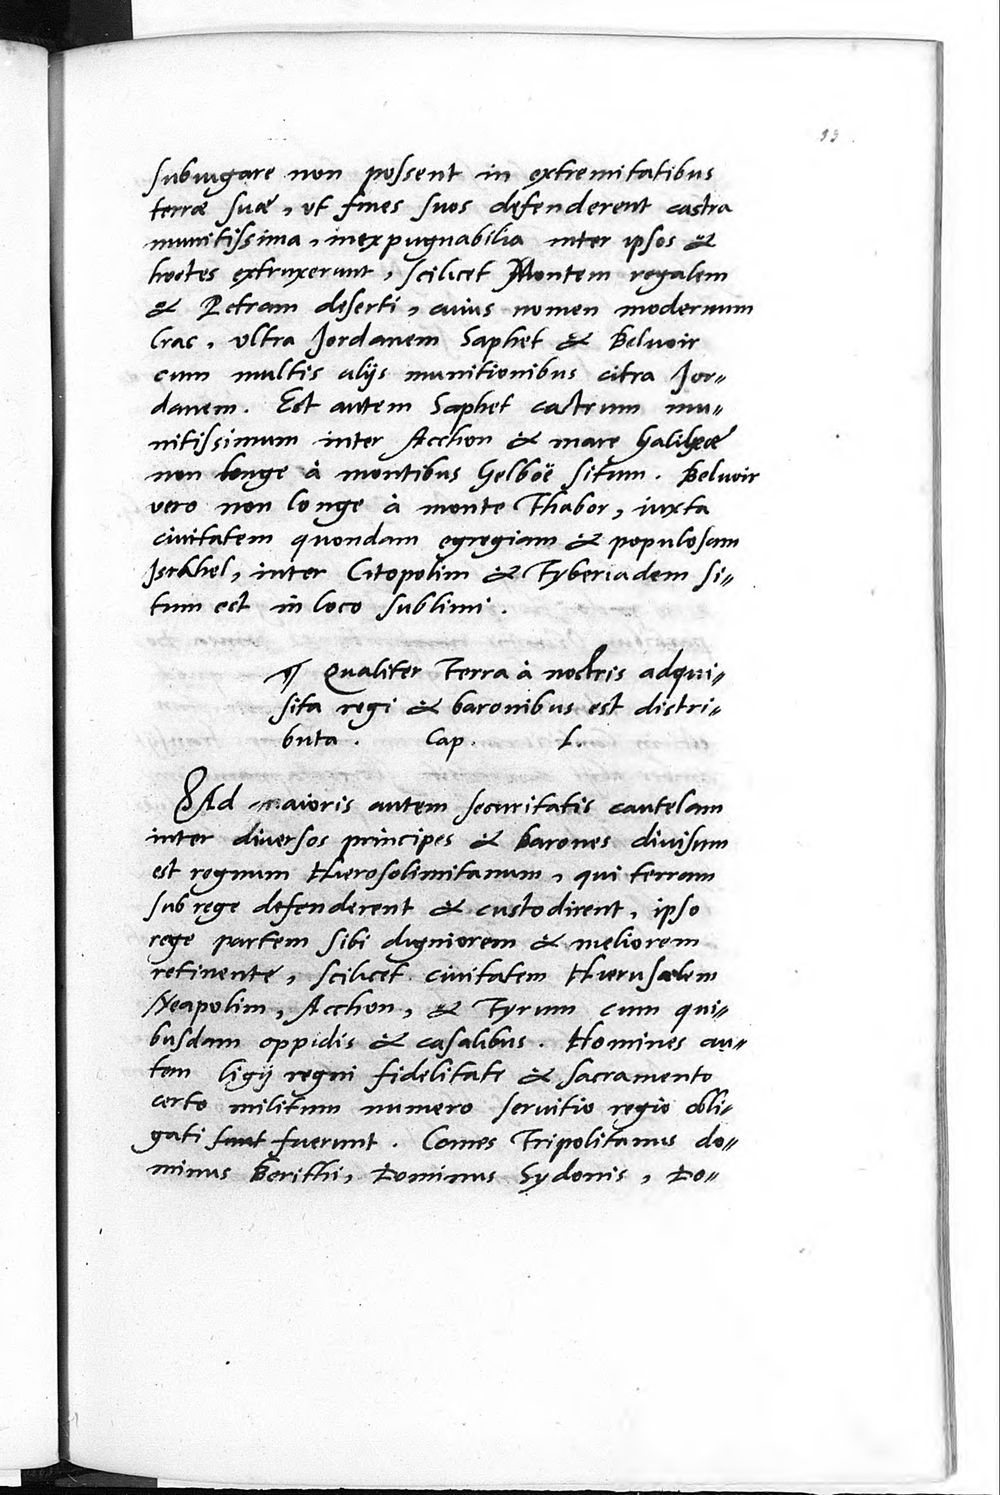 33
subiugare non possent in extremitatibus
terræ suæ, ut fines suos defenderent castra
munitissima, inexpugnabilia inter ipsos &
hostes extruxerunt, scilicet Montem regalem
& Petram deserti, cuius nomen modernum
Crac, ultra Jordanem Saphet & Beluoir
cum multis alijs munitionibus citra Jor=
danem. Est autem Saphet castrum mu=
nitissimum inter Acchon & mare Galileæ
non longe à montibus Gelboë situm. Beluoir
vero non longe à monte Thabor, iuxta
ciuitatem quondam egregiam & populosam
Israhel, inter Citopolim & Tyberiadem si=
tum est in loco sublimi.
¶ Qualiter Terra à nostris adqui=
sita regi & baronibus est distri=
buta. Cap. L.
Ad maioris autem securitatis cautelam
inter diuersos principes & barones diuisum
est regnum Hierosolimitanum, qui terram
sub rege defenderent & custodirent, ipso
rege partem sibi digniorem & meliorem
retinente, scilicet ciuitatem Hierusalem
Neapolim, Acchon, & Tyrum cum qui=
busdam oppidis & casalibus. Homines au=
tem ligij regni fidelitate & sacramento
certo militum numero seruitio regio obli=
gati sunt fuerunt. Comes Tripolitanus do=
minus Berithi, Dominus Sydonis, Do=